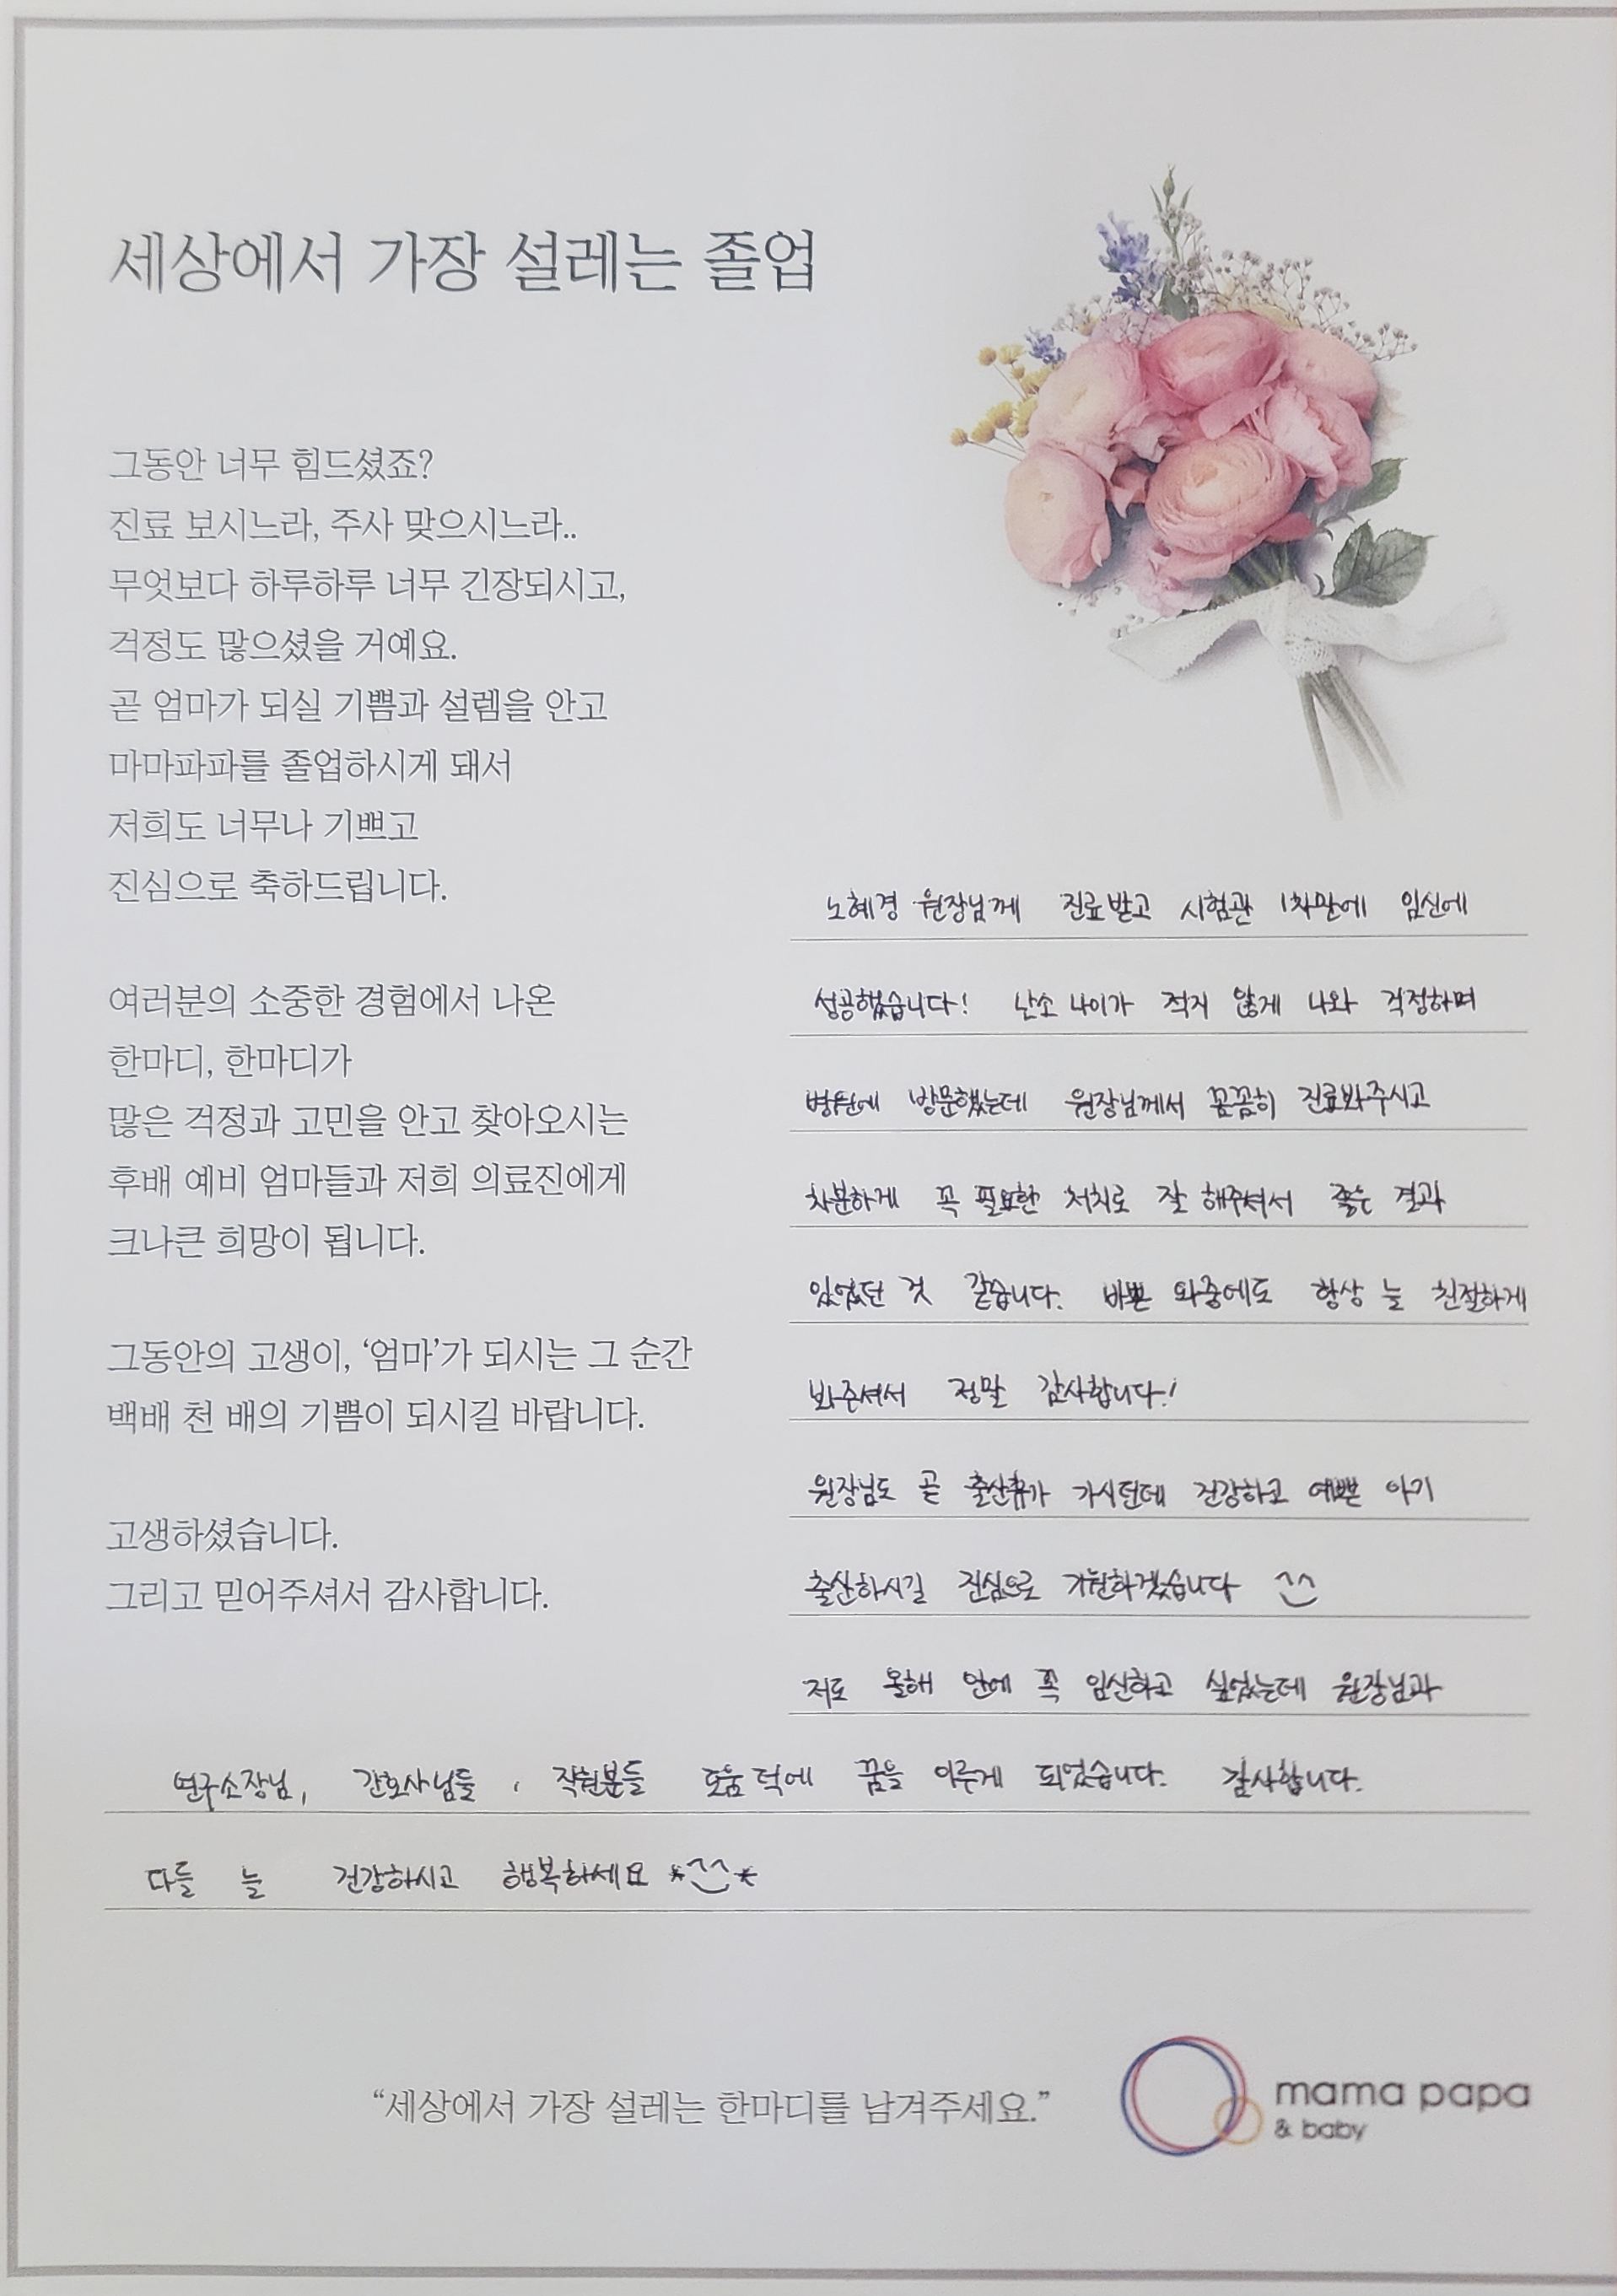 세상에서 가장 설레는 졸업
그동안 너무 힘드셨죠?
진료 보시느라, 주사 맞으시느라..
무엇보다 하루하루 너무 긴장되시고,
걱정도 많으셨을 거예요.
곧 엄마가 되실 기쁨과 설렘을 안고
마마파파를 졸업하시게 돼서
저희도 너무나 기쁘고
진심으로 축하드립니다.
여러분의 소중한 경험에서 나온
한마디, 한마디가
많은 걱정과 고민을 안고 찾아오시는
후배 예비 엄마들과 저희 의료진에게
크나큰 희망이 됩니다.
그동안의 고생이, ‘엄마’가 되시는 그 순간
백배 천 배의 기쁨이 되시길 바랍니다.
고생하셨습니다.
그리고 믿어주셔서 감사합니다.
노혜경 원장님께 진료받고 시험관 1차만에 임신에
성공했습니다! 난소 나이가 적지 않게 나와 걱정하며
병원에 방문했는데 원장님께서 꼼꼼히 진료봐주시고
차분하게 꼭 필요한 처치로 잘 해주셔서 좋은 결과
있었던 것 같습니다. 바쁜 와중에도 항상 늘 친절하게
봐주셔서 정말 감사합니다!
원장님도 곧 출산휴가 가시던데 건강하고 예쁜 아기
출산하시길 진심으로 기원하겠습니다 ^^
저도 올해 안에 꼭 임신하고 싶었는데 원장님과
연구소장님, 간호사님들, 직원분들 도움 덕에 꿈을 이루게 되었습니다. 감사합니다.
다들 늘 건강하시고 행복하세요 *^^*
“세상에서 가장 설레는 한마디를 남겨주세요.”
mama papa
& baby